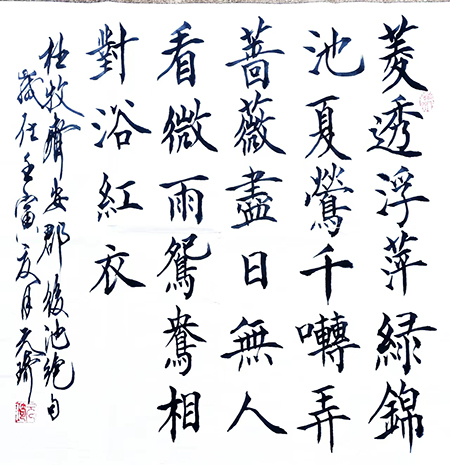 菱透浮萍綠錦
池夏鶯千囀弄
薔薇盡日無人
看微雨鴛鴦相
對浴紅衣
杜牧齊安郡後池絕句
歲在壬寅夏月